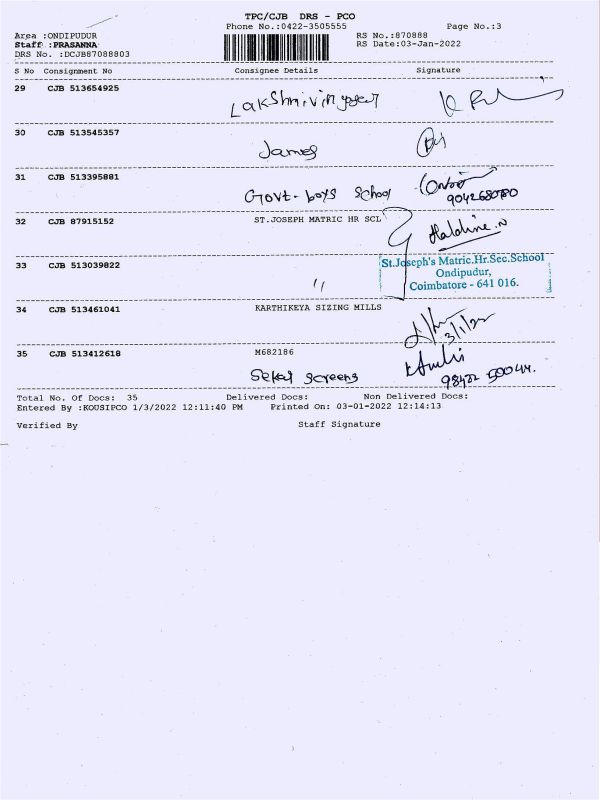 TPC/CJB DRS - PCO
Phone No.:0422-3505555 Page No.:3
Area :ONDIPUDUR RS No.:870888
Staff :PRASANNA RS Date:03-Jan-2022
DRS No. :DCJB87088803
S No Consignment No Consignee Details Signature
29 CJB 513654925
30 CJB 513545357
James
31 CJB 513395881
Govt. boys School
32 CJB 87915152 ST.JOSEPH MATRIC HR SCL
Haldine.N
33 CJB 513039822 St.Joseph's Matric.Hr.Sec.School
Ondipudur,
〃 Coimbatore - 641 016.
34 CJB 513461041 KARTHIKEYA SIZING MILLS
3/1/22
35 CJB 513412618 M682186
Sekar Screens 98422 50044.
Total No. Of Docs: 35 Delivered Docs: Non Delivered Docs:
Entered By :KOUSIPCO 1/3/2022 12:11:40 PM Printed On: 03-01-2022 12:14:13
Verified By Staff Signature